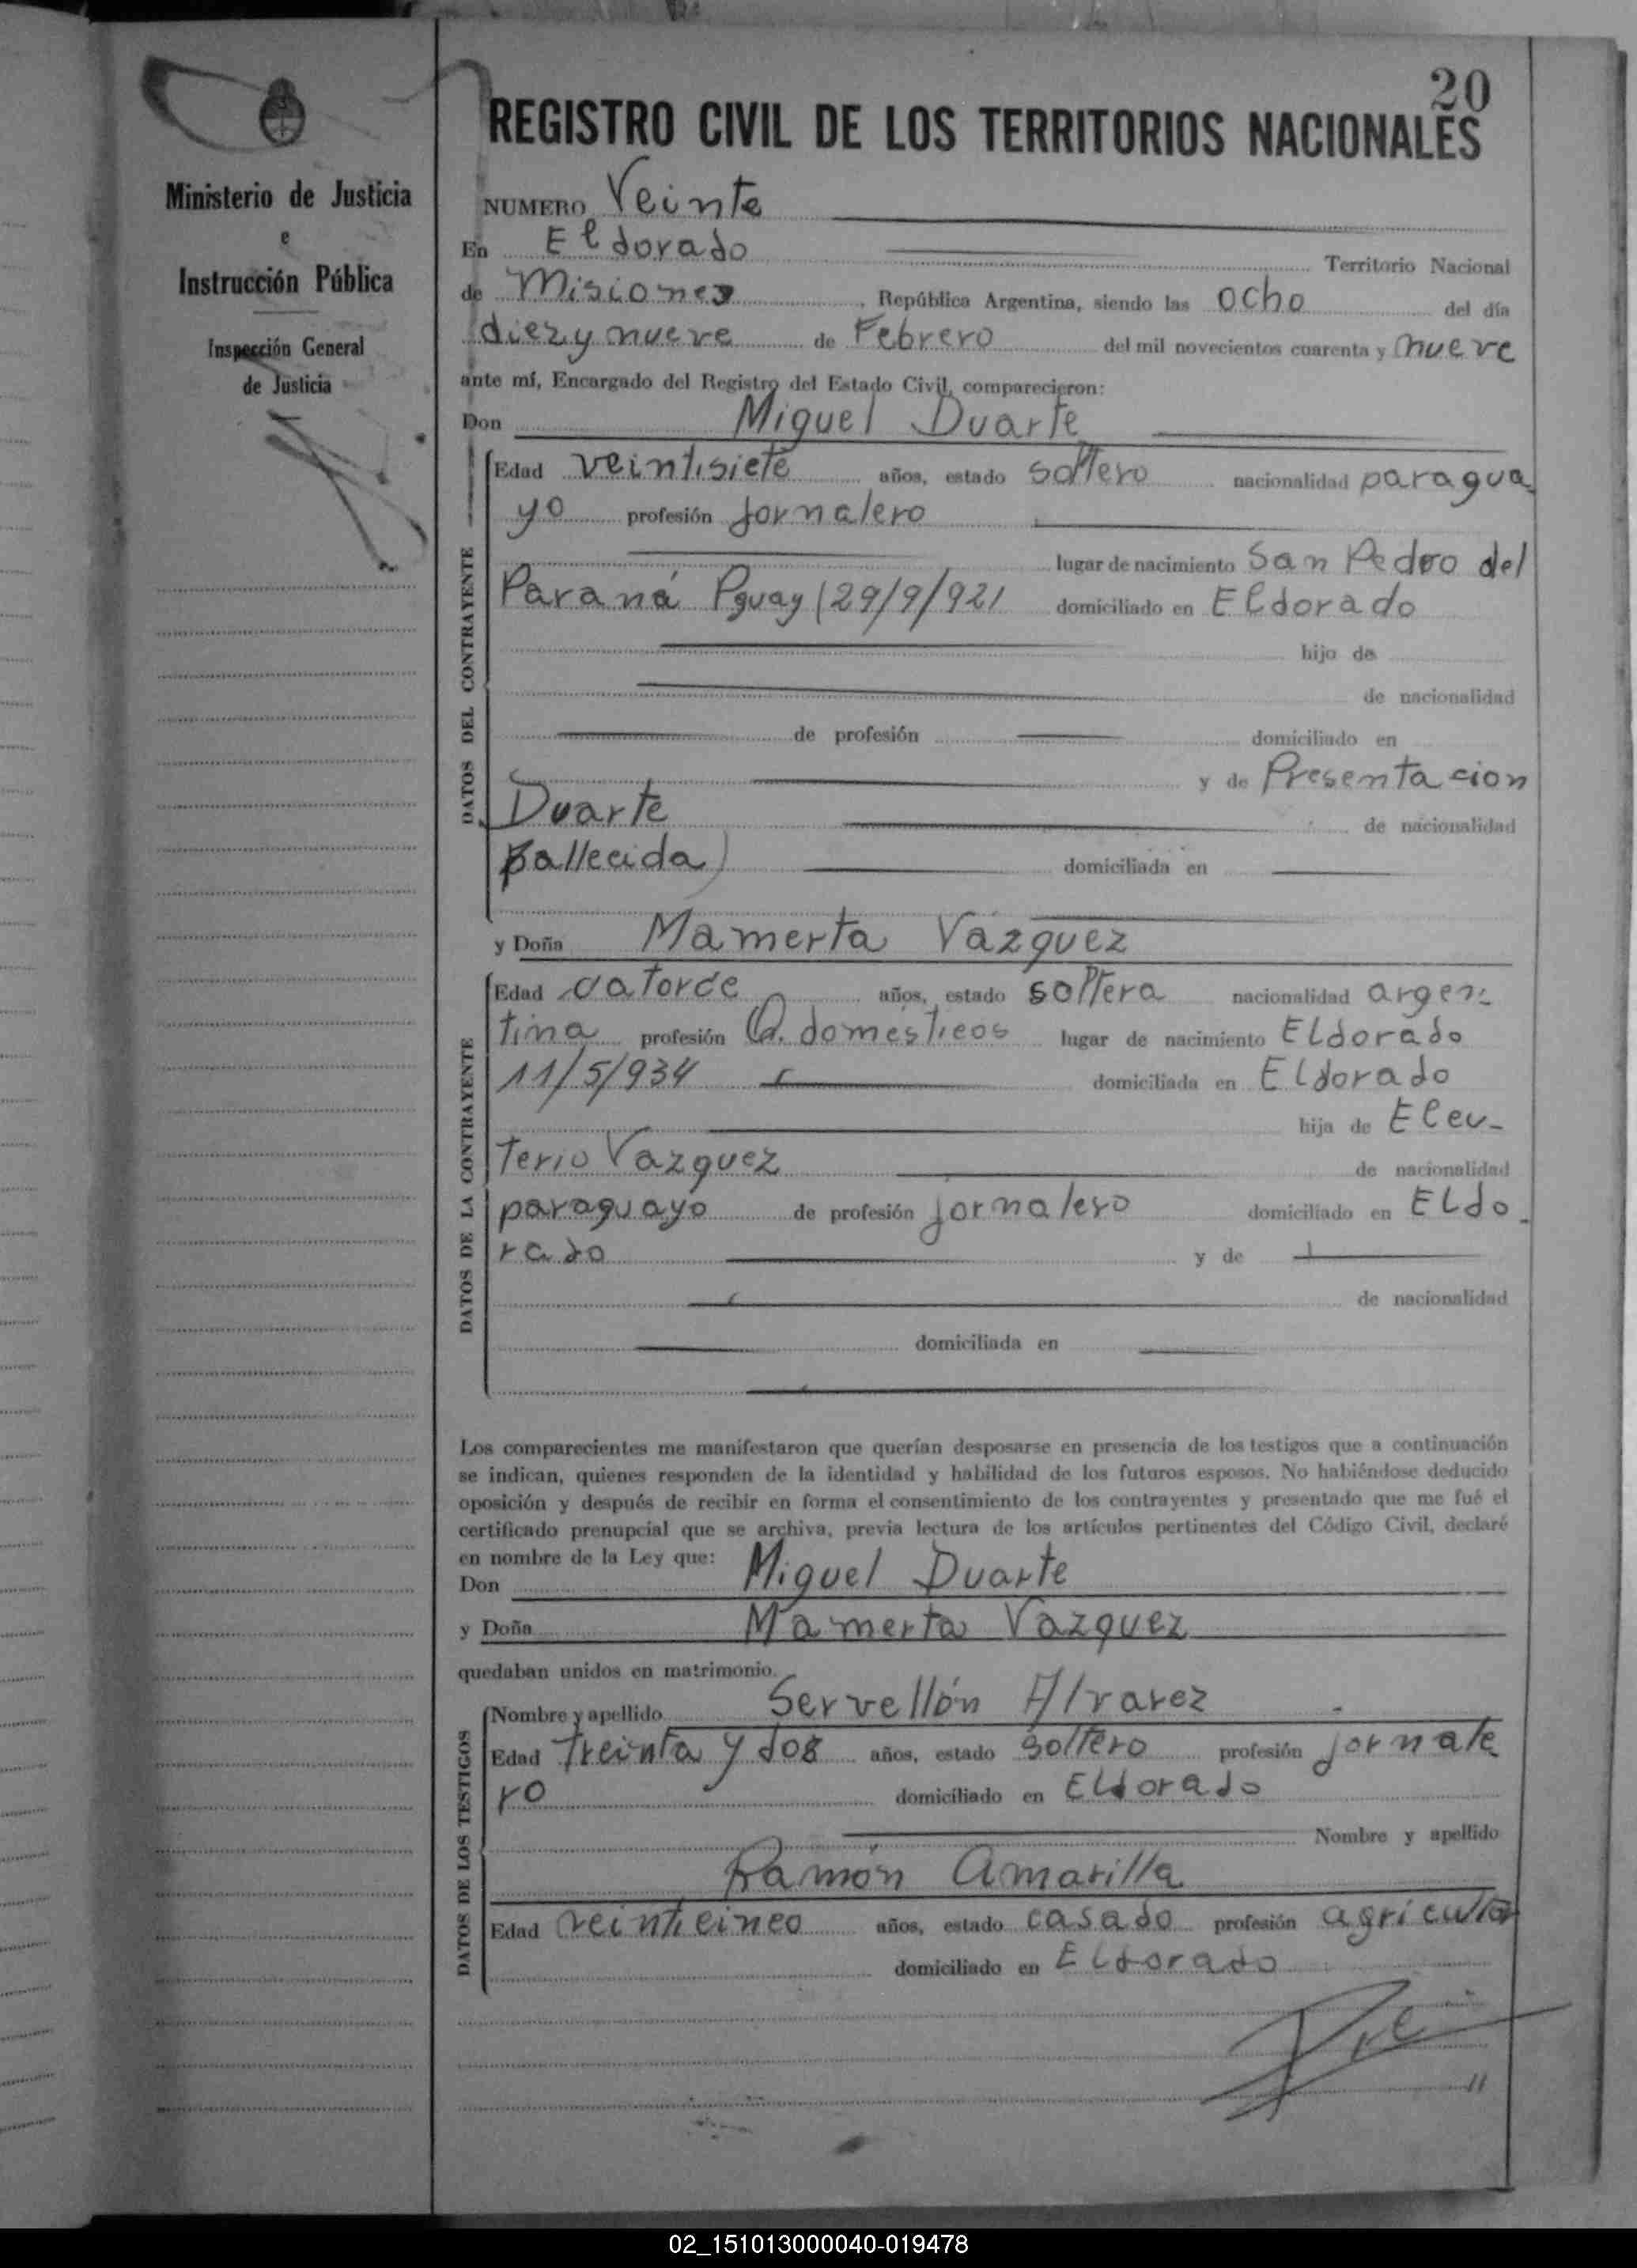 20
REGISTRO CIVIL DE LOS TERRITORIOS NACIONALES
Ministerio de Justicia
e
Instrucción Pública
Inspección General
de Justicia
NUMERO Veinte
En Eldorado Territorio Nacional
de Misiones, República Argentina, siendo las ocho del día
diez y nueve de Febrero del mil novecientos cuarenta y nueve
ante mí, Encargado del Registro del Estado Civil, comparecieron:
Don Miguel Duarte
DATOS DEL CONTRAYENTE
Edad veintisiete años, estado soltero nacionalidad paragua
yo profesión jornalero
lugar de nacimiento San Pedro del
Paraná Pguay (29/9/921 domiciliado en Eldorado
hijo de
de nacionalidad
de profesión domiciliado en
y de Presentacion
Duarte de nacionalidad
fallecida) domiciliada en
y Doña Mamerta Vázquez
DATOS DE LA CONTRAYENTE
Edad catorce años, estado soltera nacionalidad argen-
tina profesión Q. domésticos lugar de nacimiento Eldorado
11/5/934 domiciliada en Eldorado
hija de Eleu-
terio Vazquez de nacionalidad
paraguayo de profesión jornalero domiciliado en Eldo-
rado y de
de nacionalidad
domiciliada en
Los comparecientes me manifestaron que querían desposarse en presencia de los testigos que a continuación
se indican, quienes responden de la identidad y habilidad de los futuros esposos. No habiéndose deducido
oposición y después de recibir en forma el consentimiento de los contrayentes y presentado que me fué el
certificado prenupcial que se archiva, previa lectura de los artículos pertinentes del Código Civil, declaré
en nombre de la Ley que:
Don Miguel Duarte
y Doña Mamerta Vazquez
quedaban unidos en matrimonio.
DATOS DE LOS TESTIGOS
Nombre y apellido Servellón Alvarez
Edad treinta y dos años, estado soltero profesión jornale
ro domiciliado en Eldorado
Nombre y apellido
Ramón Amarilla
Edad veinticinco años, estado casado profesión agricultor
domiciliado en Eldorado
02_151013000040-019478